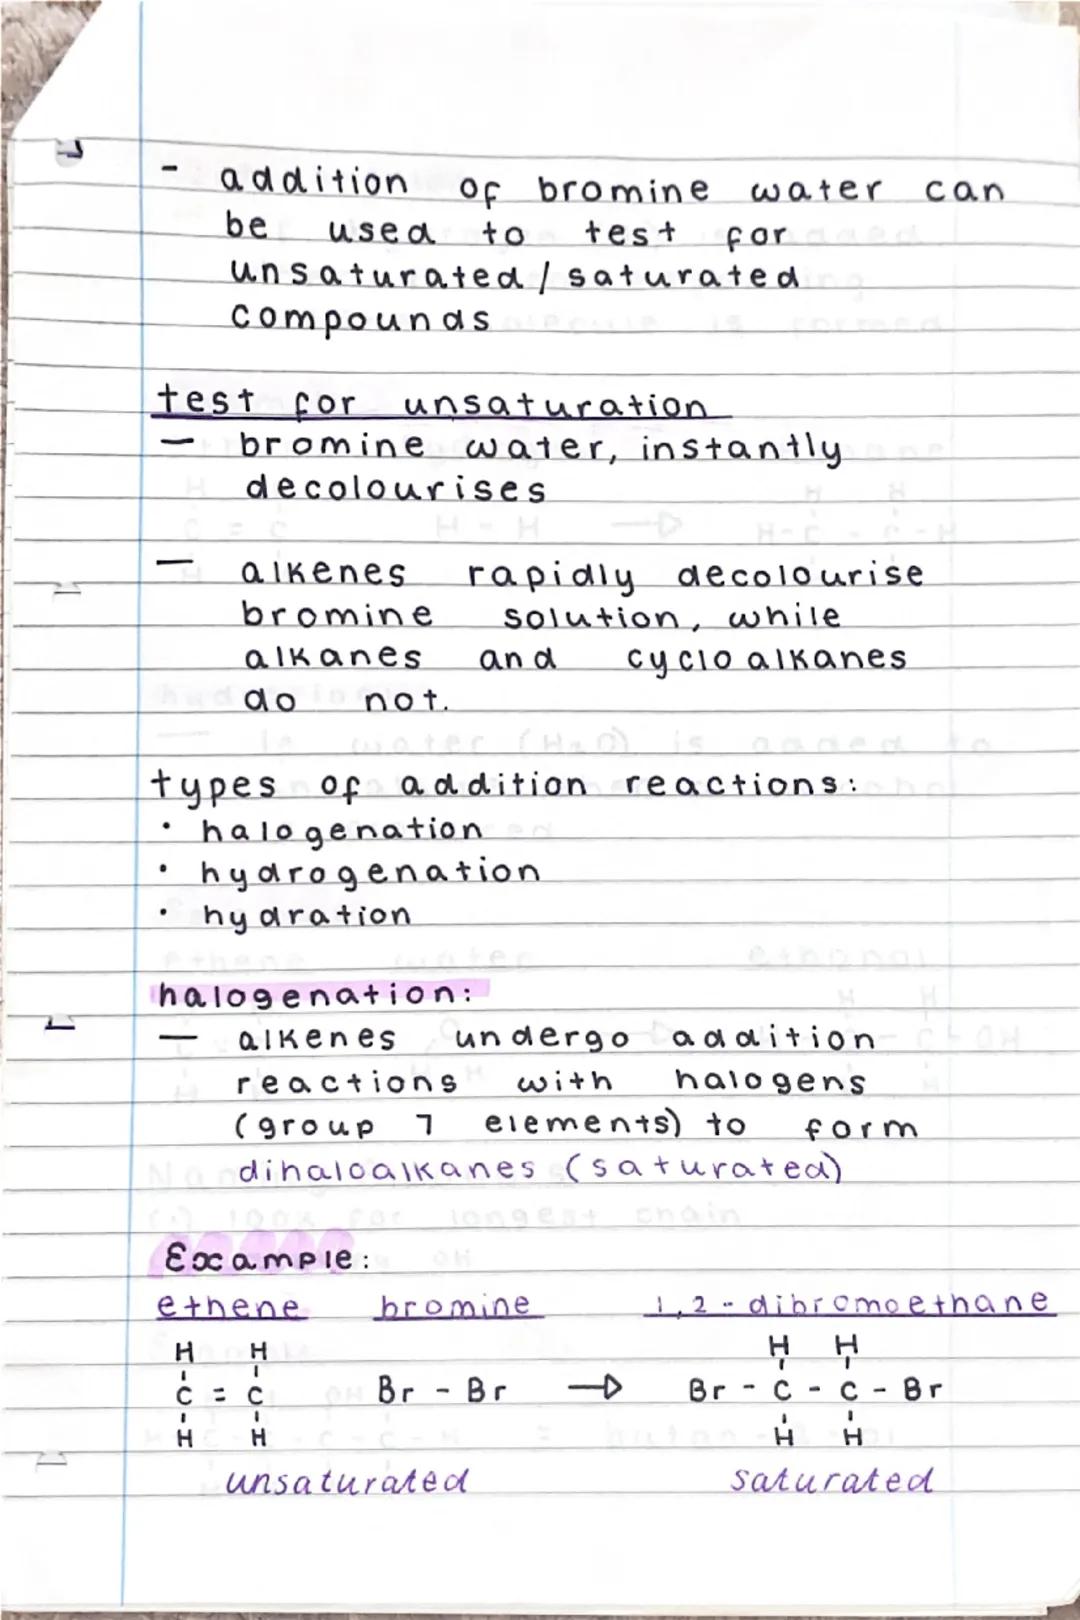 - addition of bromine water can
be used to test for
unsaturated/saturated
compounds
test for unsaturation
- bromine water, instantly
decolourises
- alkenes rapidly decolourise
bromine solution, while
alkanes and cycloalkanes
do not.
types of addition reactions:
• halogenation
• hydrogenation
• hydration
halogenation:
- alkenes undergo addition
reactions with halogens
(group 7 elements) to form
dihaloalkanes (saturated)
Example:
ethene bromine 1,2-dibromoethane
H H H H
C = C Br - Br → Br - C - C - Br
H H H H
unsaturated saturated